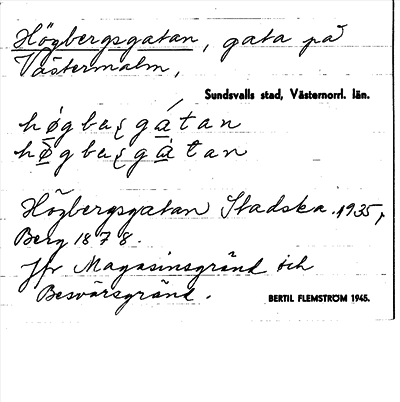 Högbergsgatan, gata på
Västermalm,
Sundsvalls stad, Västernorrl. län.
Högbergsgatan Stadska. 1935,
Berg 1878.
Jfr Magasinsgränd och
Besvärsgränd.
BERTIL FLEMSTRÖM 1945.